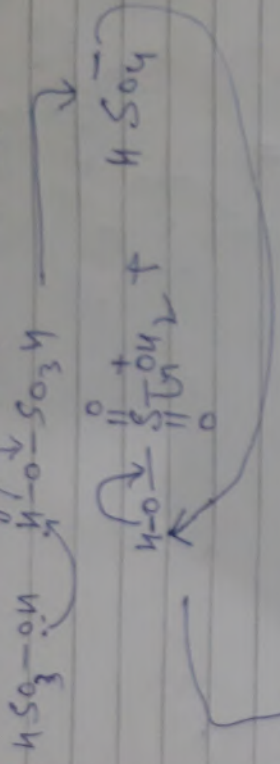 HSO₃—ÖH H—O—SO₃H →
O
||
H—O—S—OH₂ + HSO₄⁻
||
O
+